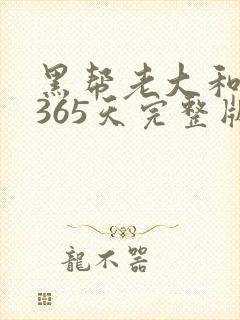 黑帮老大和
365天完整版
龍不器